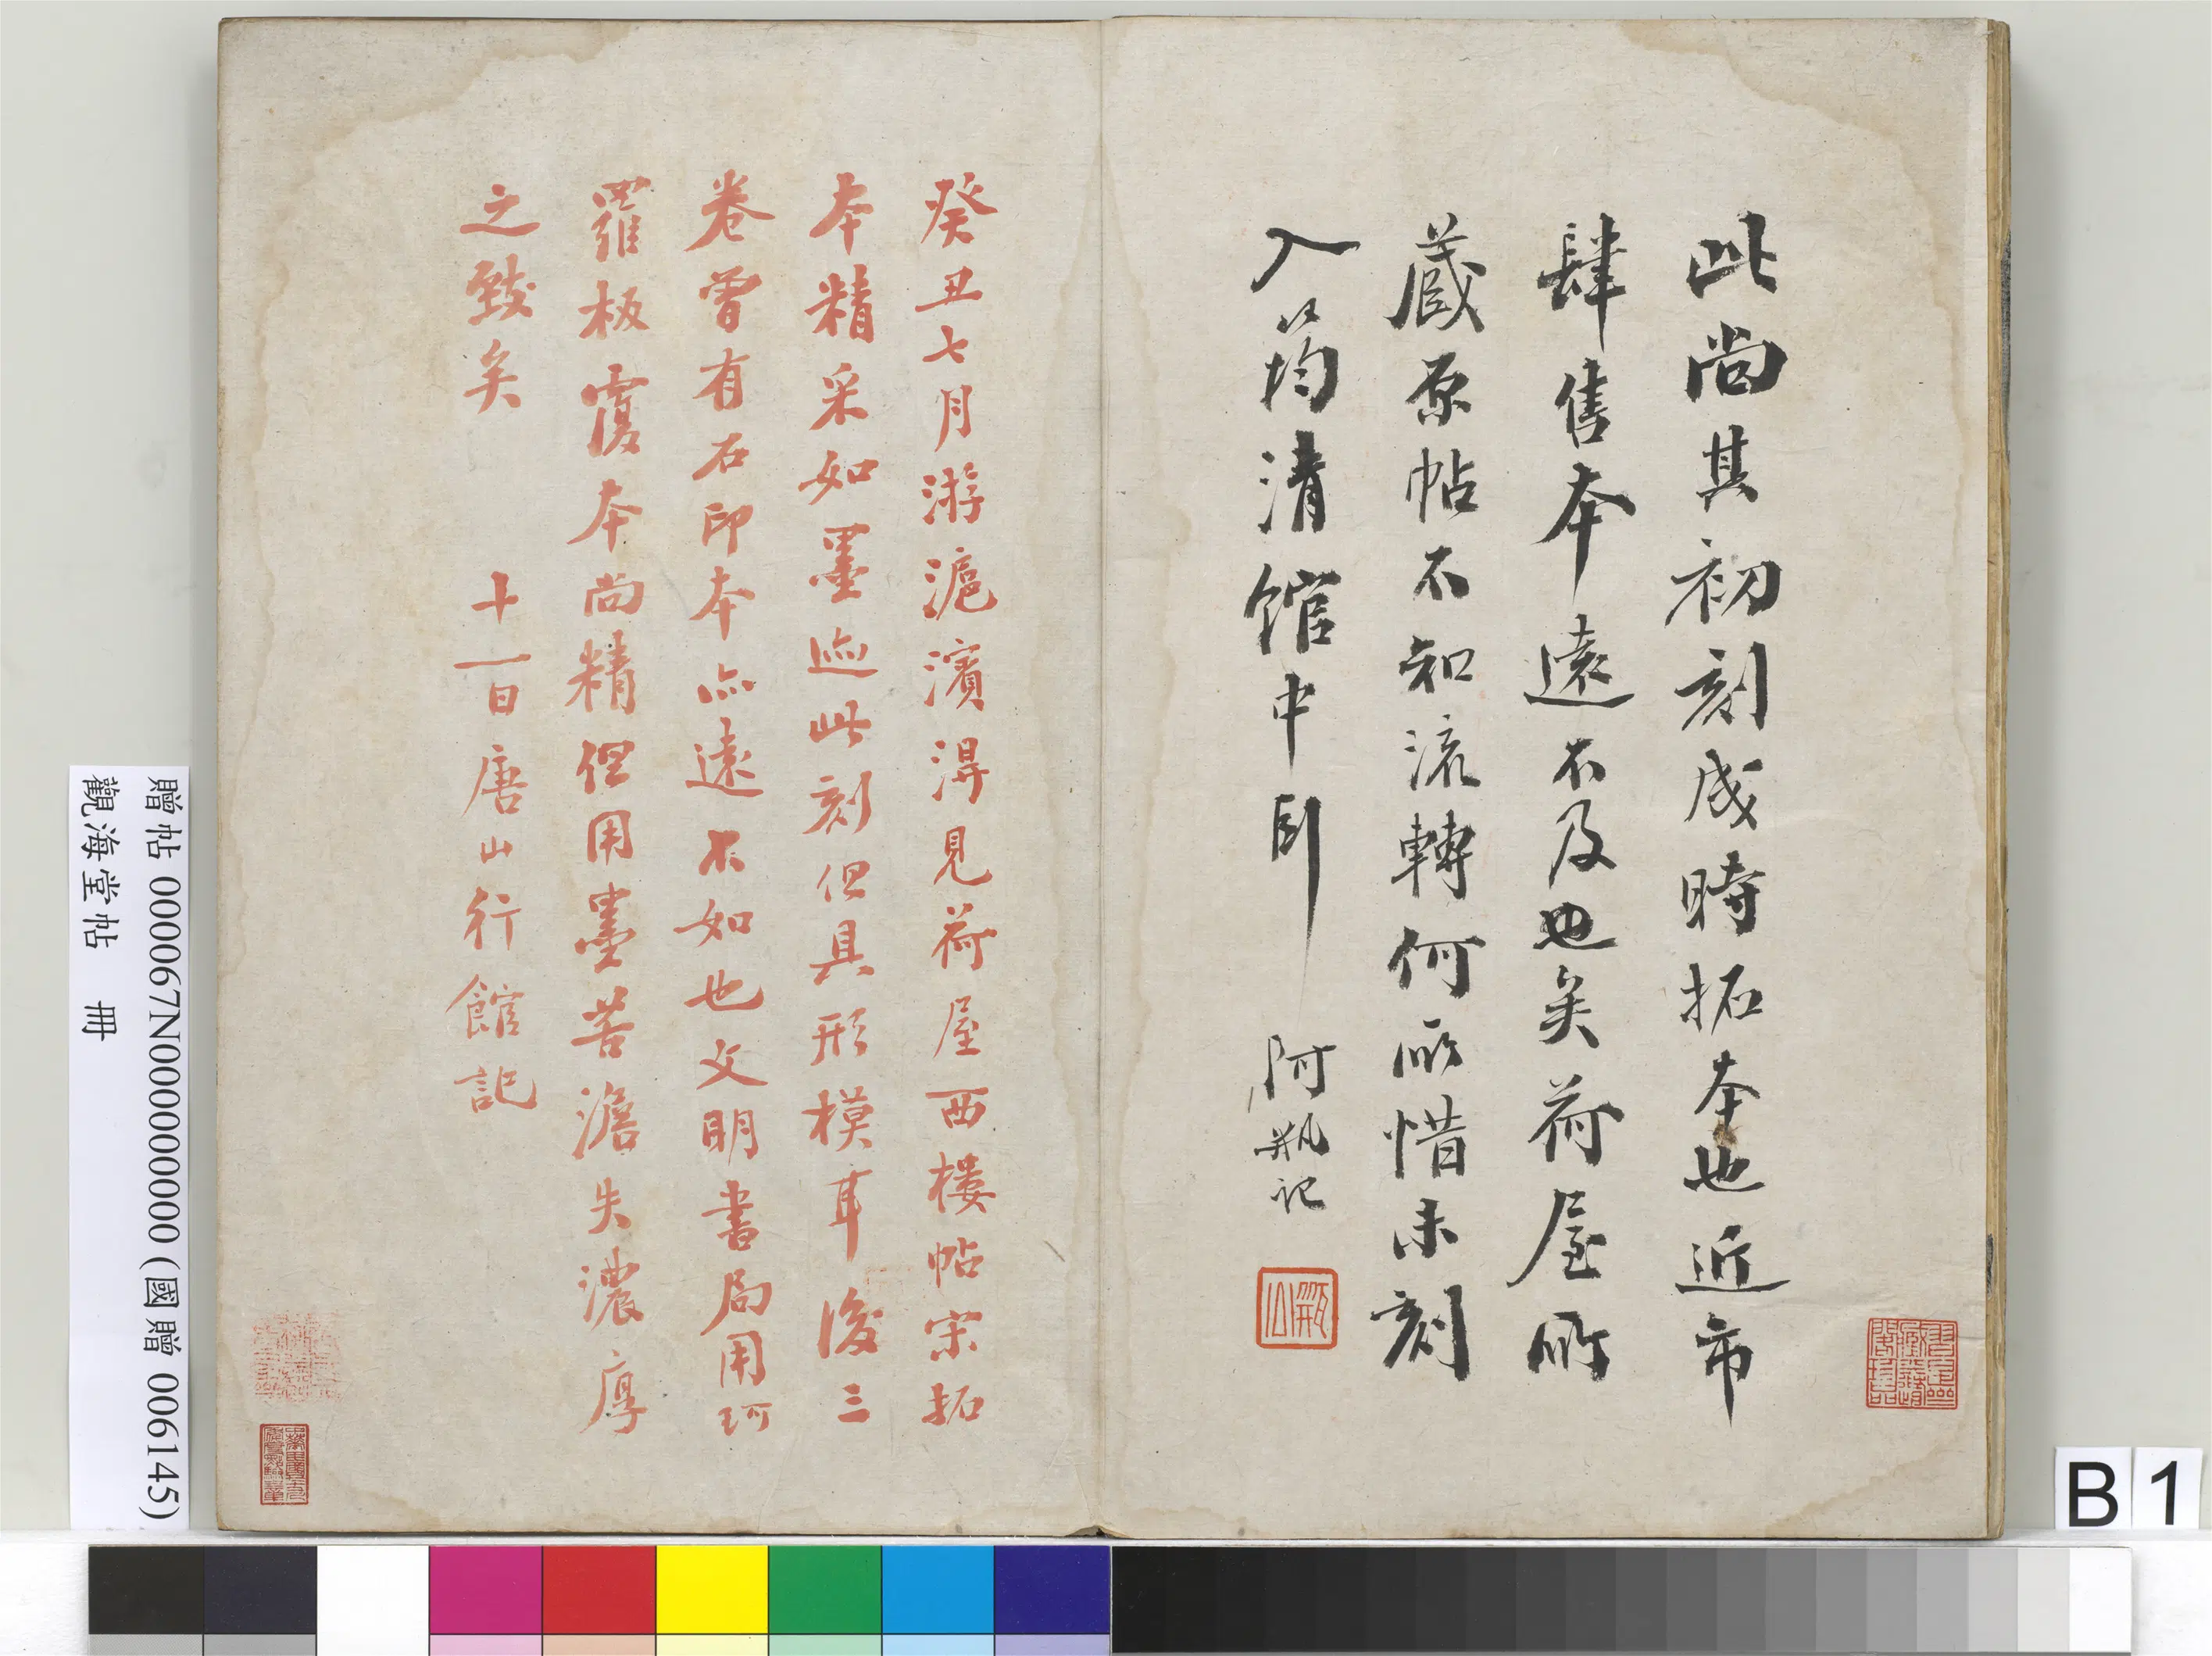 此尚其初刻成時拓本也近市
肆售本遠不及也矣荷屋所
藏原帖不知流轉何所惜未刻
入筠清館中耶 阿瓶記
瓶公
癸丑七月游滬濱得見荷屋西樓帖宋拓
本精采如墨迹此刻但具形模耳後三
卷曾有石印本亦遠不如也文明書局用珂
羅板覆本尚精但用墨苦澹失濃厚
之致矣 十一日唐山行館記
贈帖 000067N000000000 (國贈 006145)
觀海堂帖 冊
B 1